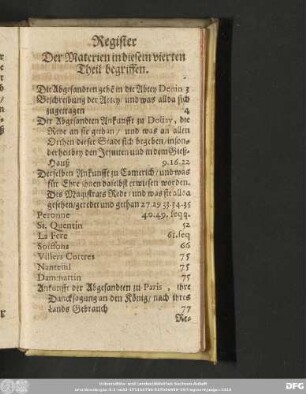 Register
Der Materien in diesem vierten
Theil begriffen.
Die Abgesandten gehē in die Abtey Denin 3
Beschreibung der Abtey / und was allda sich
zugetragen 4
Der Abgesandten Ankunfft zu Doüay, die
Rede an sie gethan / und was an allen
Orthen dieser Stadt sich begeben / inson-
derheit bey den Jesuiten und in dem Gieß-
Hauß 9.16.22
Derselben Ankunfft zu Camerich / und was
für Ehre ihnen daselbst erwiesen worden.
Des Magistrats Rede / und was sie allda
gesehen / geredet und gethan 27.29.33.34.35
Peronne 40.49. seqq.
St. Quentin 52
La Fere 61. seq
Soissons 66
Villers Cottres 75
Nanteüil 75
Dammartin 75
Ankunfft der Abgesandten zu Paris, ihre
Dancksagung an den König / nach ihres
Lands Gebrauch 77
Re-